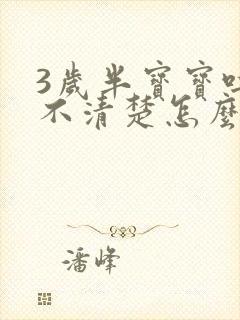 3歲半寶寶
不清楚怎麼
潘峰